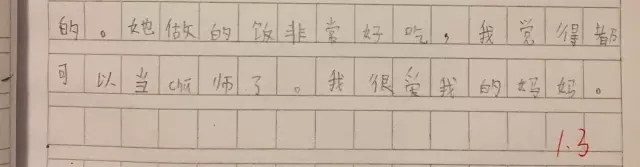 的。她做的饭非常好吃，我觉得都
可以当chú师了。我很爱我的妈妈。
1.3